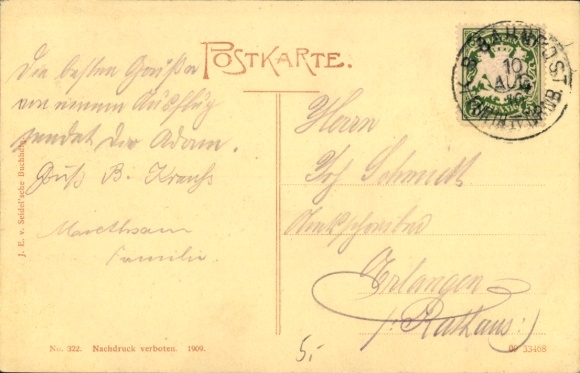 POSTKARTE.
Die besten Grüße
von einem Ausflug
sendet Dir Adam.
Gruß B. Krauß
Familie.
Herrn
Joh Schmidt
Erlangen
/: Rathaus :/
J. E. v. Seidel'sche Buchhdlg
No. 322. Nachdruck verboten. 1909.
09 33468
5.-
10
AUG